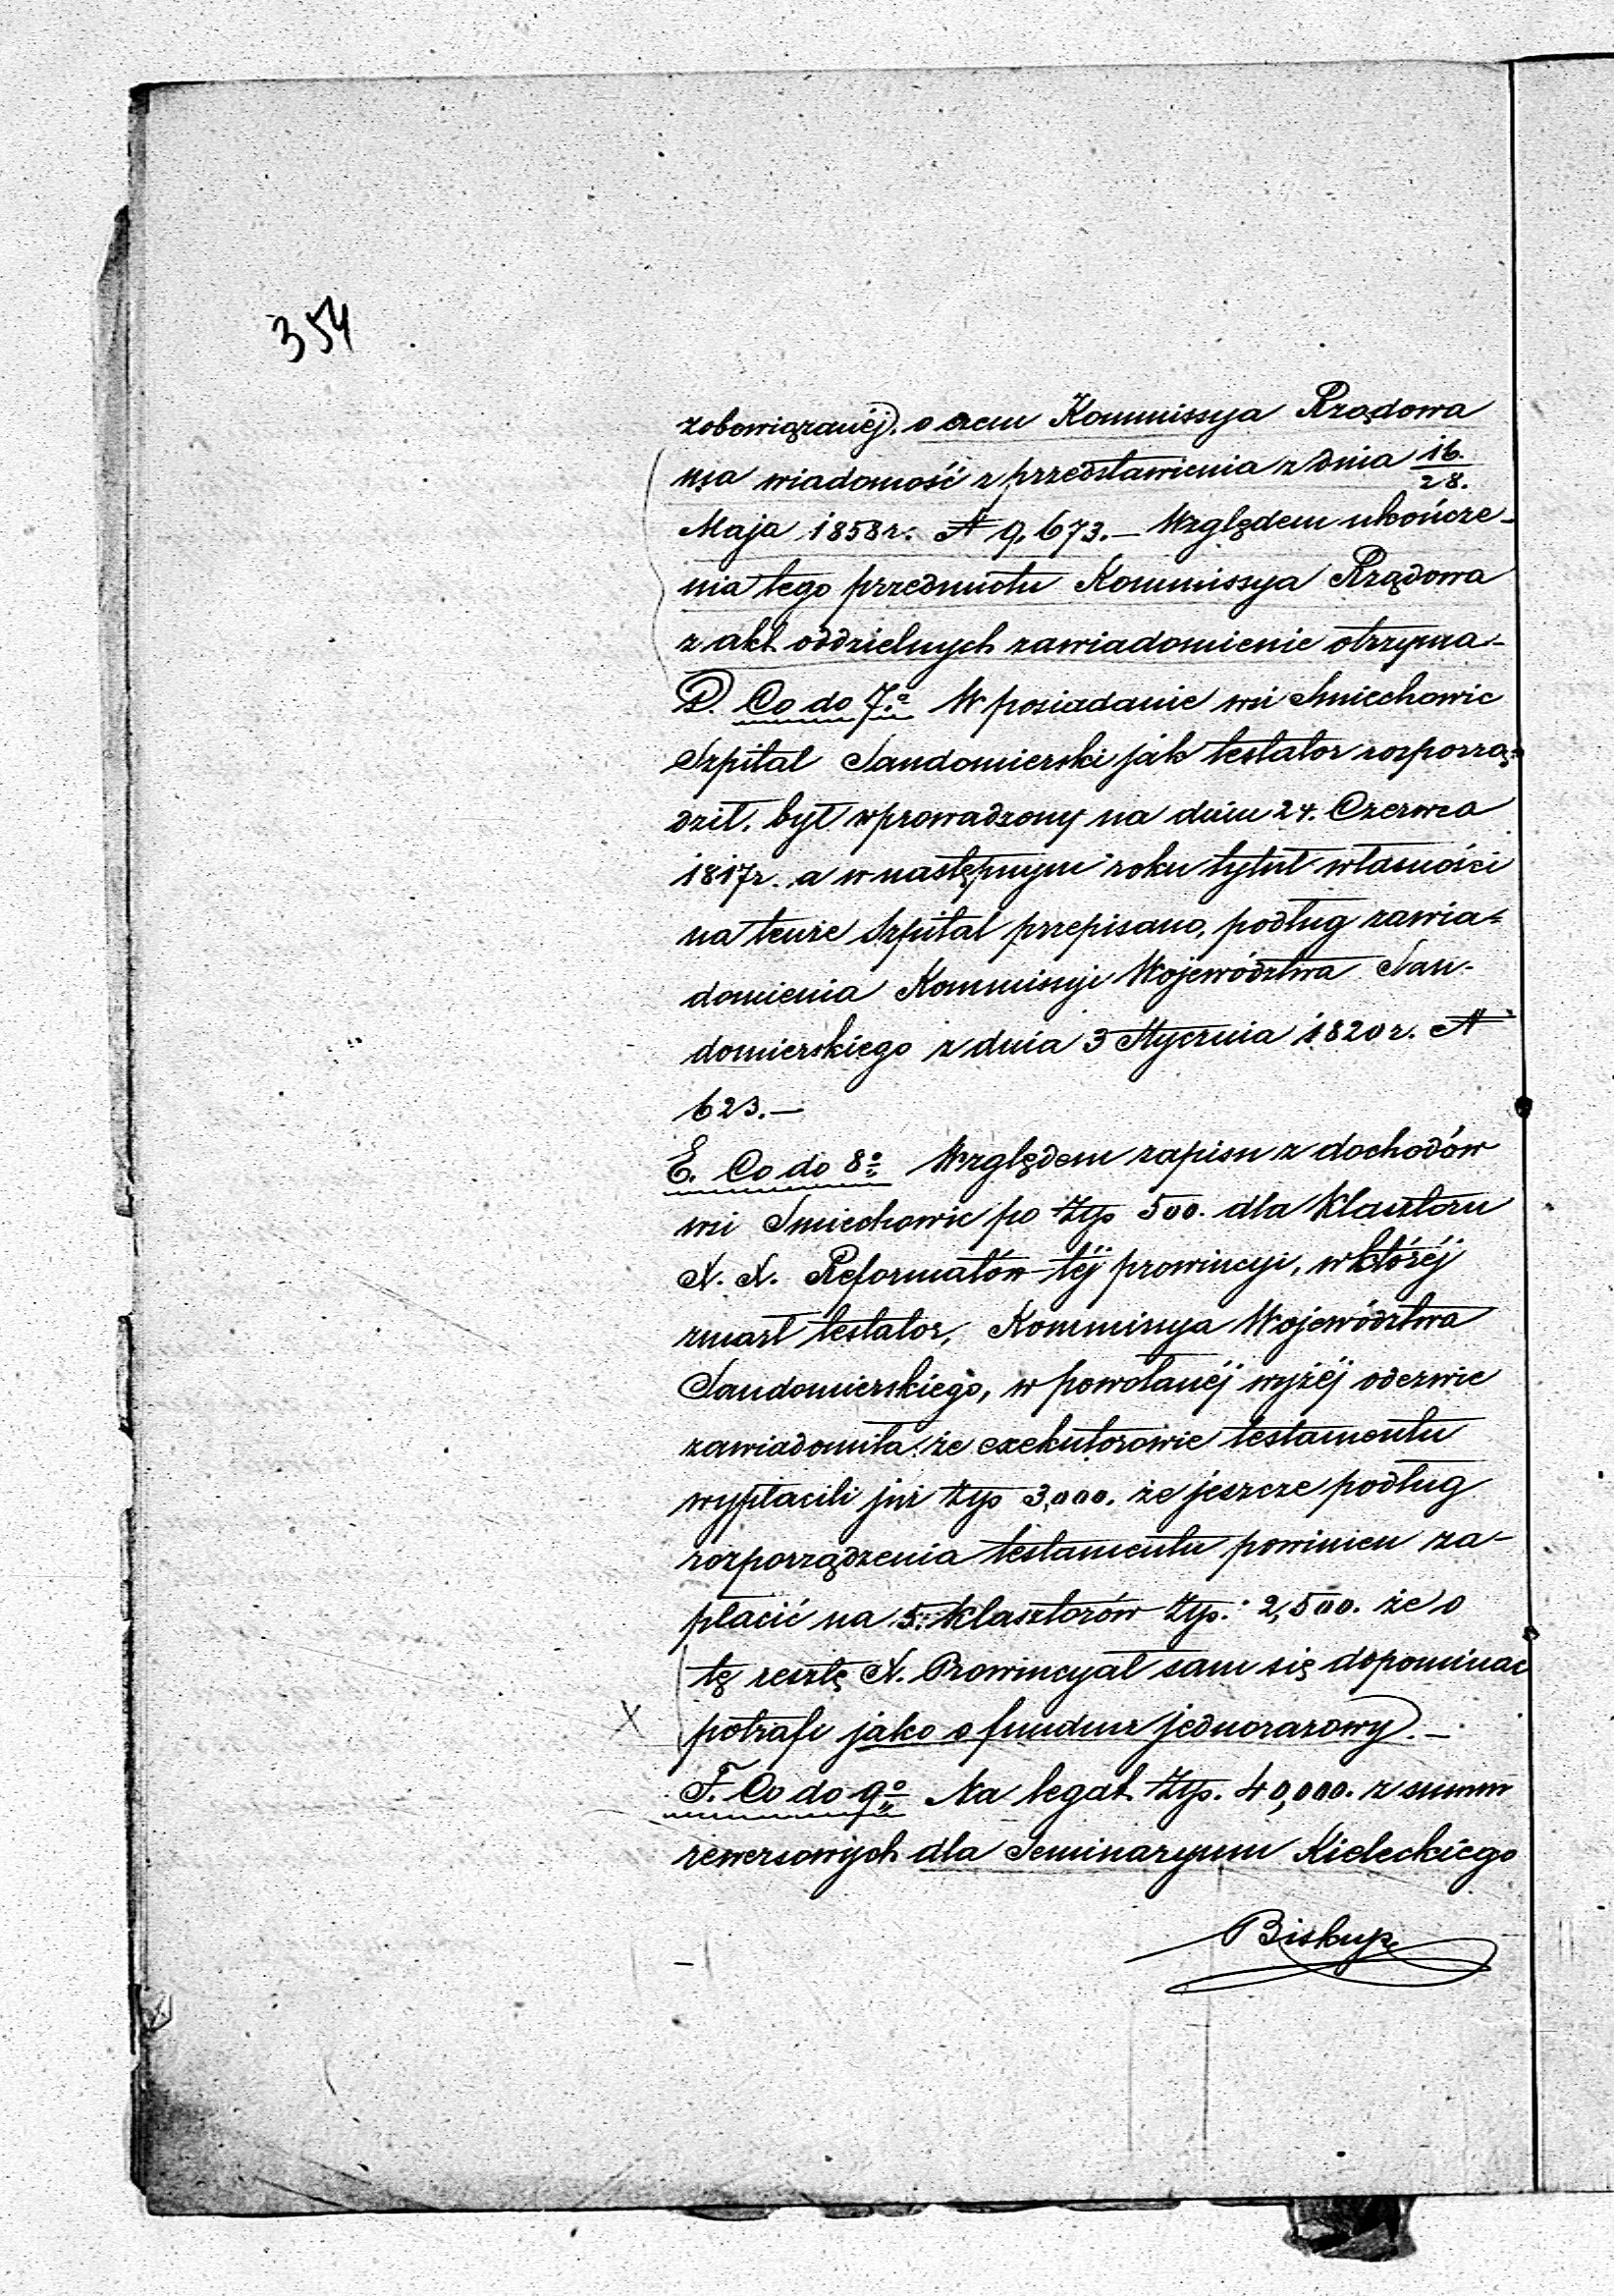 354
zobowiązanéj. o czem Kommissya Rządowa
ma wiadomość z przedstawienia z dnia 16./28.
Maja 1858r. N 9,673.— Względem ukończe-
nia tego przedmiotu Kommissya Rządowa
z akt oddzielnych zawiadomienie otrzyma-
D. Co do 7.º W posiadanie wsi Śmiechowic
Szpital Sandomierski jak testator rozporzą=
dził, był wprowadzony na dniu 24. Czerwca
1817r. a w następnym roku tytuł własności
na tenże Szpital przepisano, podług zawia=
domienia Kommissyi Województwa San-
domierskiego z dnia 3 Stycznia 1820r. N
623.—
E. Co do 8º Względem zapisu z dochodów
wsi Śmiechowic po Złp 500. dla Klasztoru
X. X. Reformatów téj prowincyi, w któréj
zmarł testator, Kommissya Województwa
Sandomierskiego, w powołanéj wyżéj odezwie
zawiadomiła: że exekutorowie testamentu
wypłacili już złp 3,000. że jeszcze podług
rozporządzenia testamentu powinien za-
płacić na 5. Klasztorów Złp. 2,500. że o
tę resztę X. Prowincyał sam się dopominać
X potrafi jako o fundusz jednorazowy.—
F. Co do 9º Na legat Złp. 40,000. z summ
rewersowych dla Seminaryum Kieleckiego
Biskup.